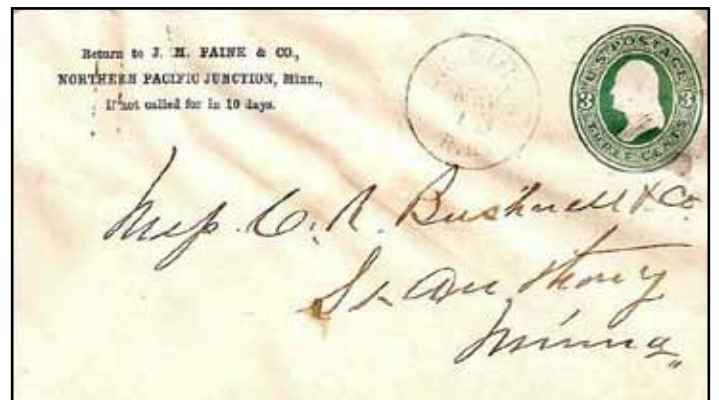 Return to J. M. PAINE & CO.,
NORTHERN PACIFIC JUNCTION, Minn.,
if not called for in 10 days.
U.S. POSTAGE
3 3
THREE CENTS
Mess. C. R. Bushnell & Co
St Anthony
Minna